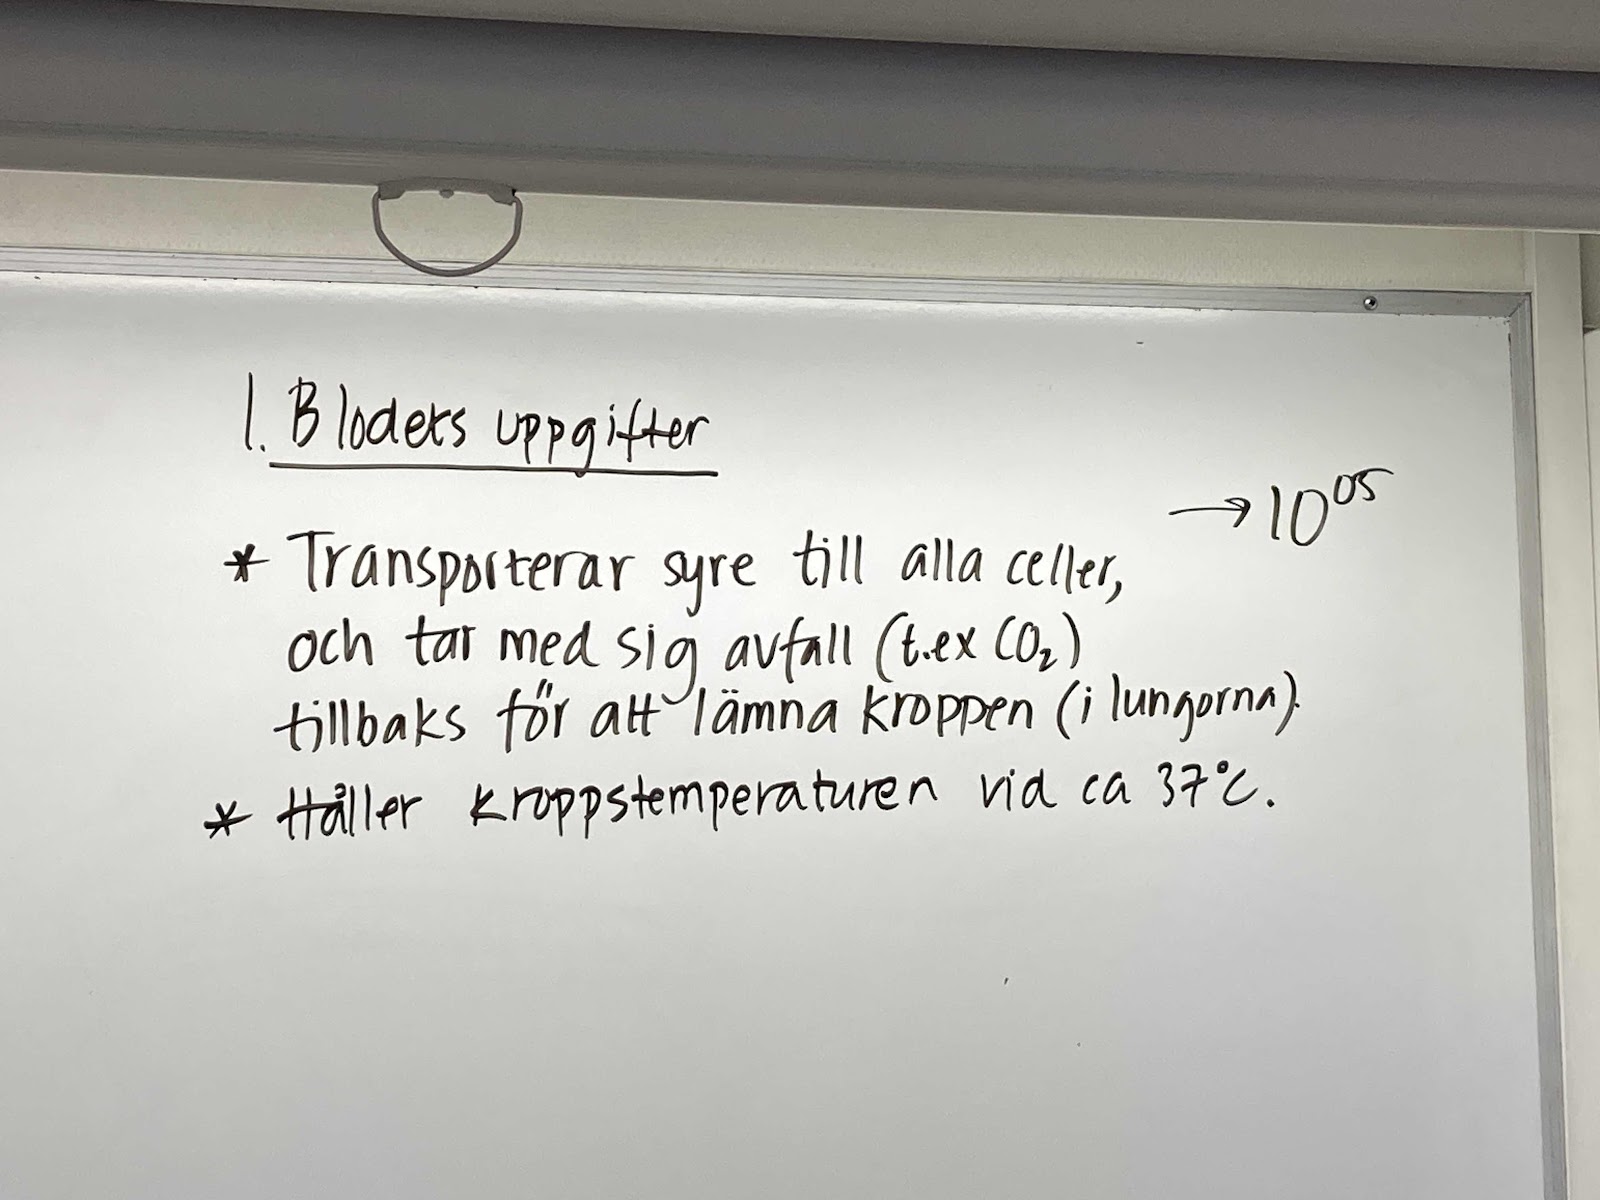 1. Blodets uppgifter
→ 10⁰⁵
* Transporterar syre till alla celler,
och tar med sig avfall (t.ex CO₂)
tillbaks för att lämna kroppen (i lungorna).
* Håller kroppstemperaturen vid ca 37°C.